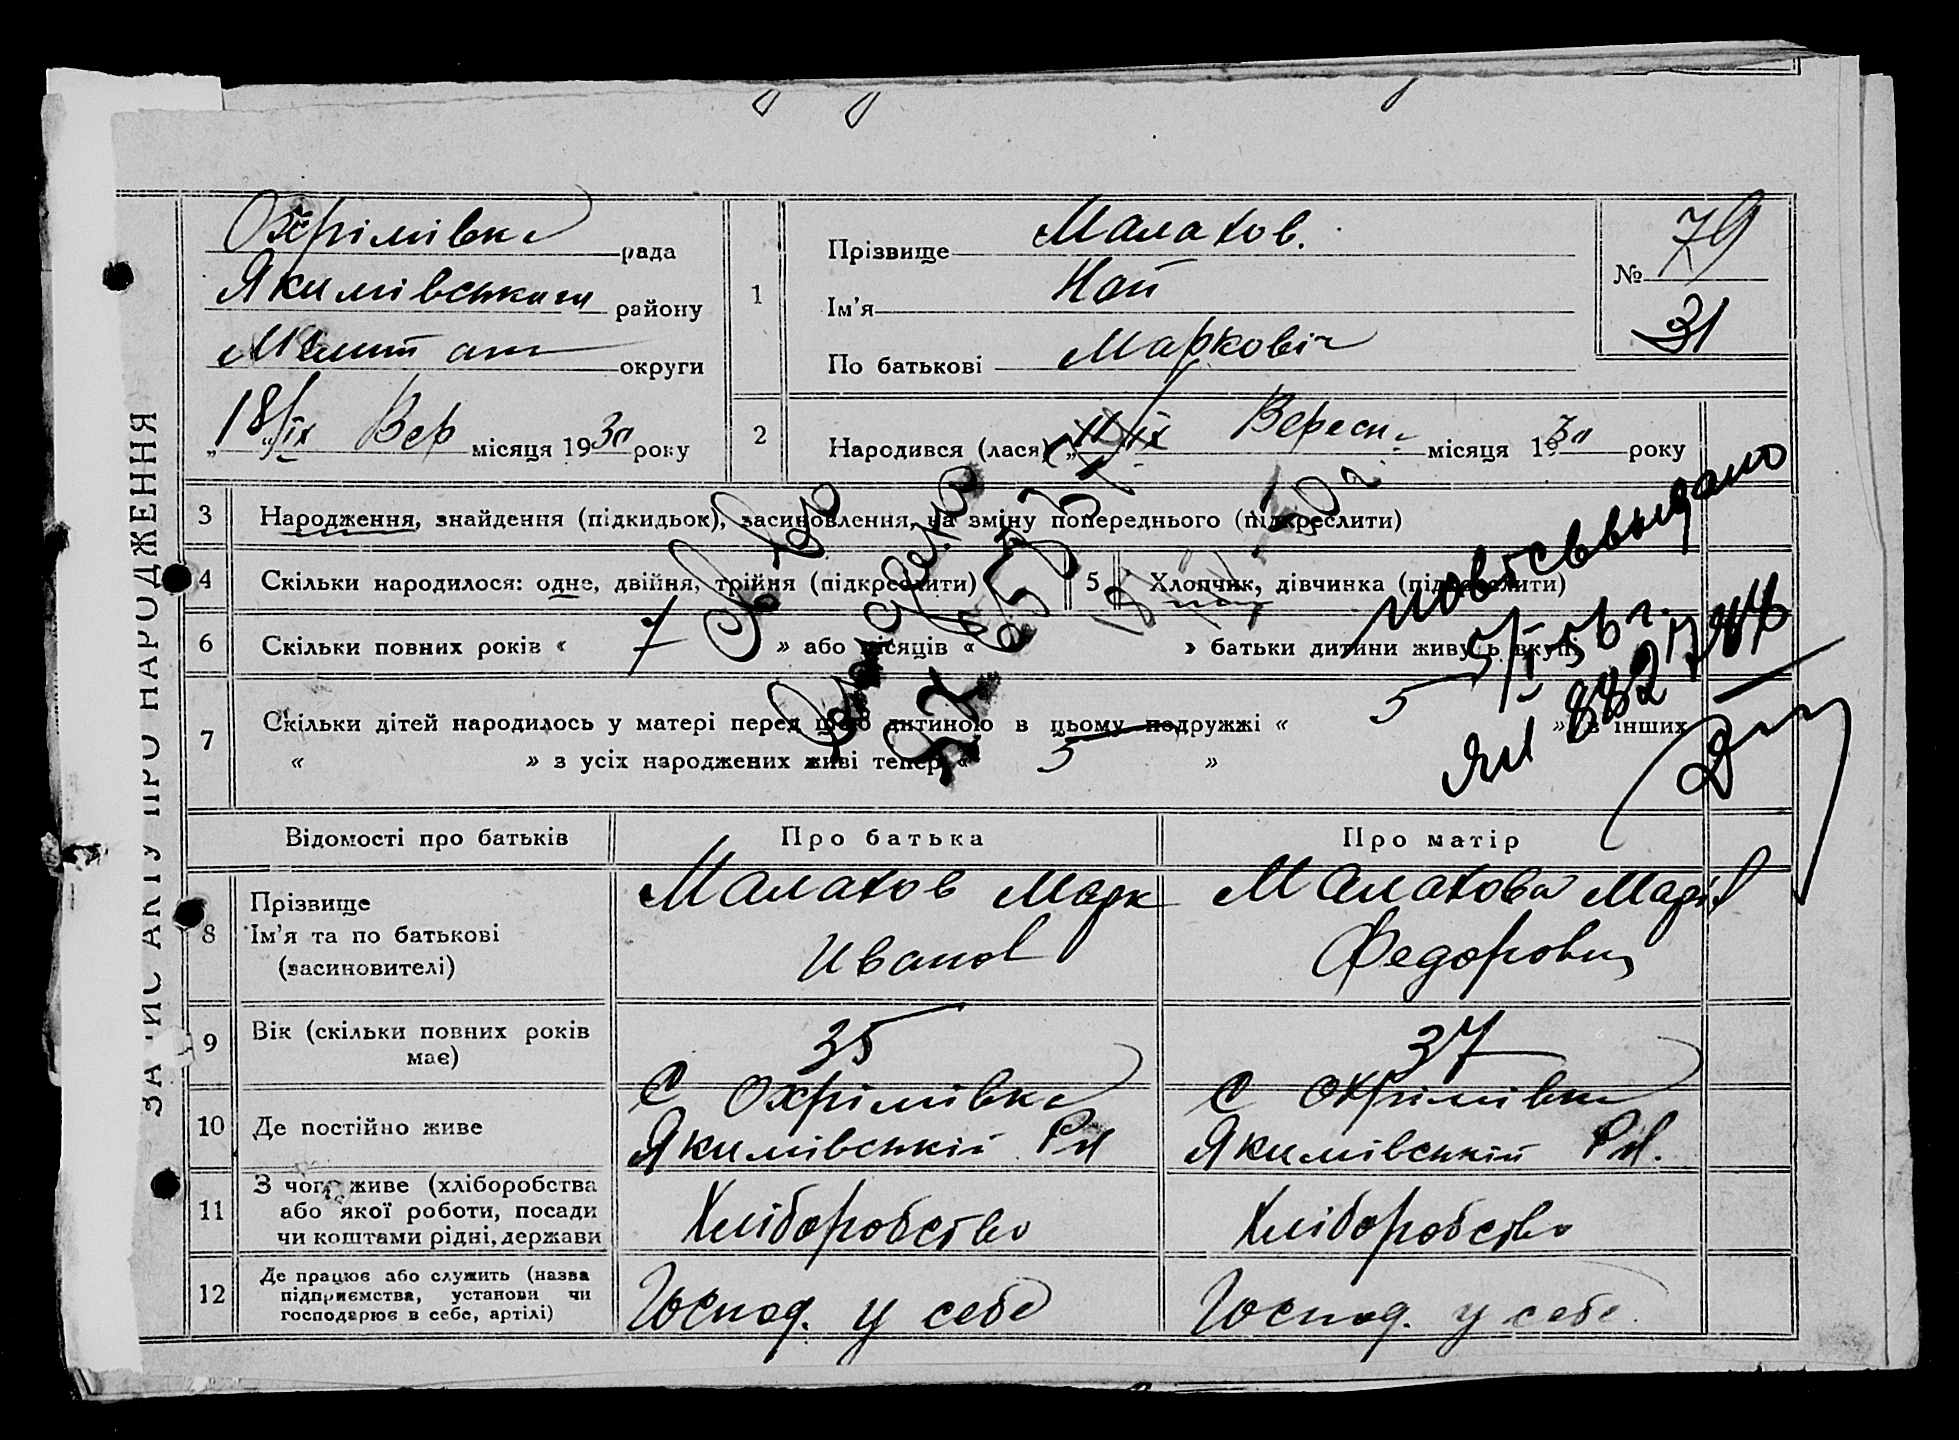 ЗАПИС АКТУ ПРО НАРОДЖЕННЯ
Охрімівка рада
Якимівського району
Меліт округи
"18/ІХ Вер місяця 1930 року
1
Прізвище Малахов.
Ім'я
По батькові Маркович
№ 79
31
2
Народився (лася) „11/ІХ Вересн. місяця 1930 року
3 Народження, знайдення (підкидьок), засиновлення, на зміну попереднього (підкреслити)
4 Скільки народилося: одне, двійня, трійня (підкреслити)
5 Хлопчик, дівчинка (підкреслити)
6 Скільки повних років « 7 » або місяців « » батьки дитини живуть вкупі
7 Скільки дітей народилось у матері перед цією дитиною в цьому подружжі « 5 » в інших
« » з усіх народжених живі тепер « 5 »
Св во
повт св выдано
5/І-56 г.
ЯП
Відомості про батьків
Про батька
Про матір
8 Прізвище
Ім'я та по батькові
(засиновителі)
Малахов Марк
Иванов
Малахова Марія
Федоровн
9 Вік (скільки повних років
має)
35
37
10 Де постійно живе
С Охрімівка
Якимівській Рн
С Охрімівка
Якимівській Рн.
11 З чого живе (хліборобства
або якої роботи, посади
чи коштами рідні, держави
Хліборобство
Хліборобство
12 Де працює або служить (назва
підприємства, установи чи
господарює в себе, артілі)
Господ. у себе
Господ. у себе